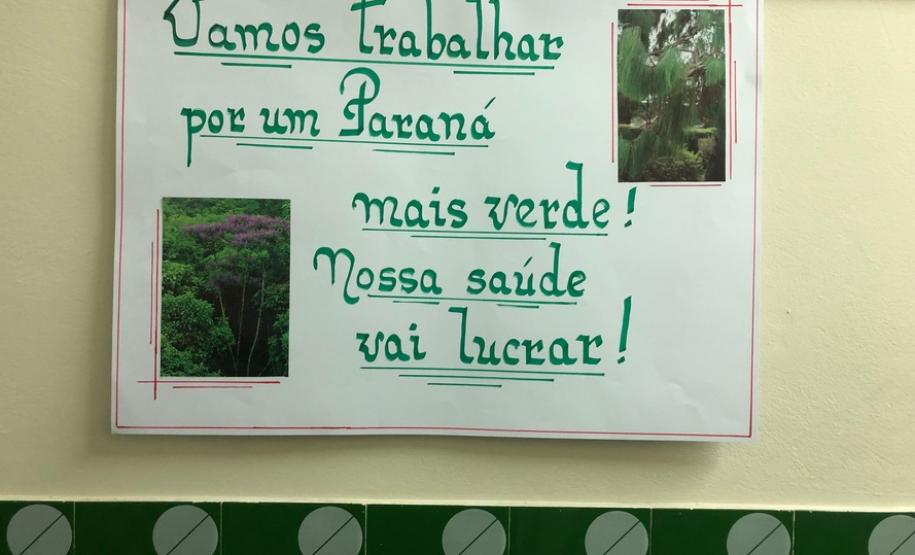 Vamos trabalhar
por um Paraná
mais verde!
Nossa saúde
vai lucrar!